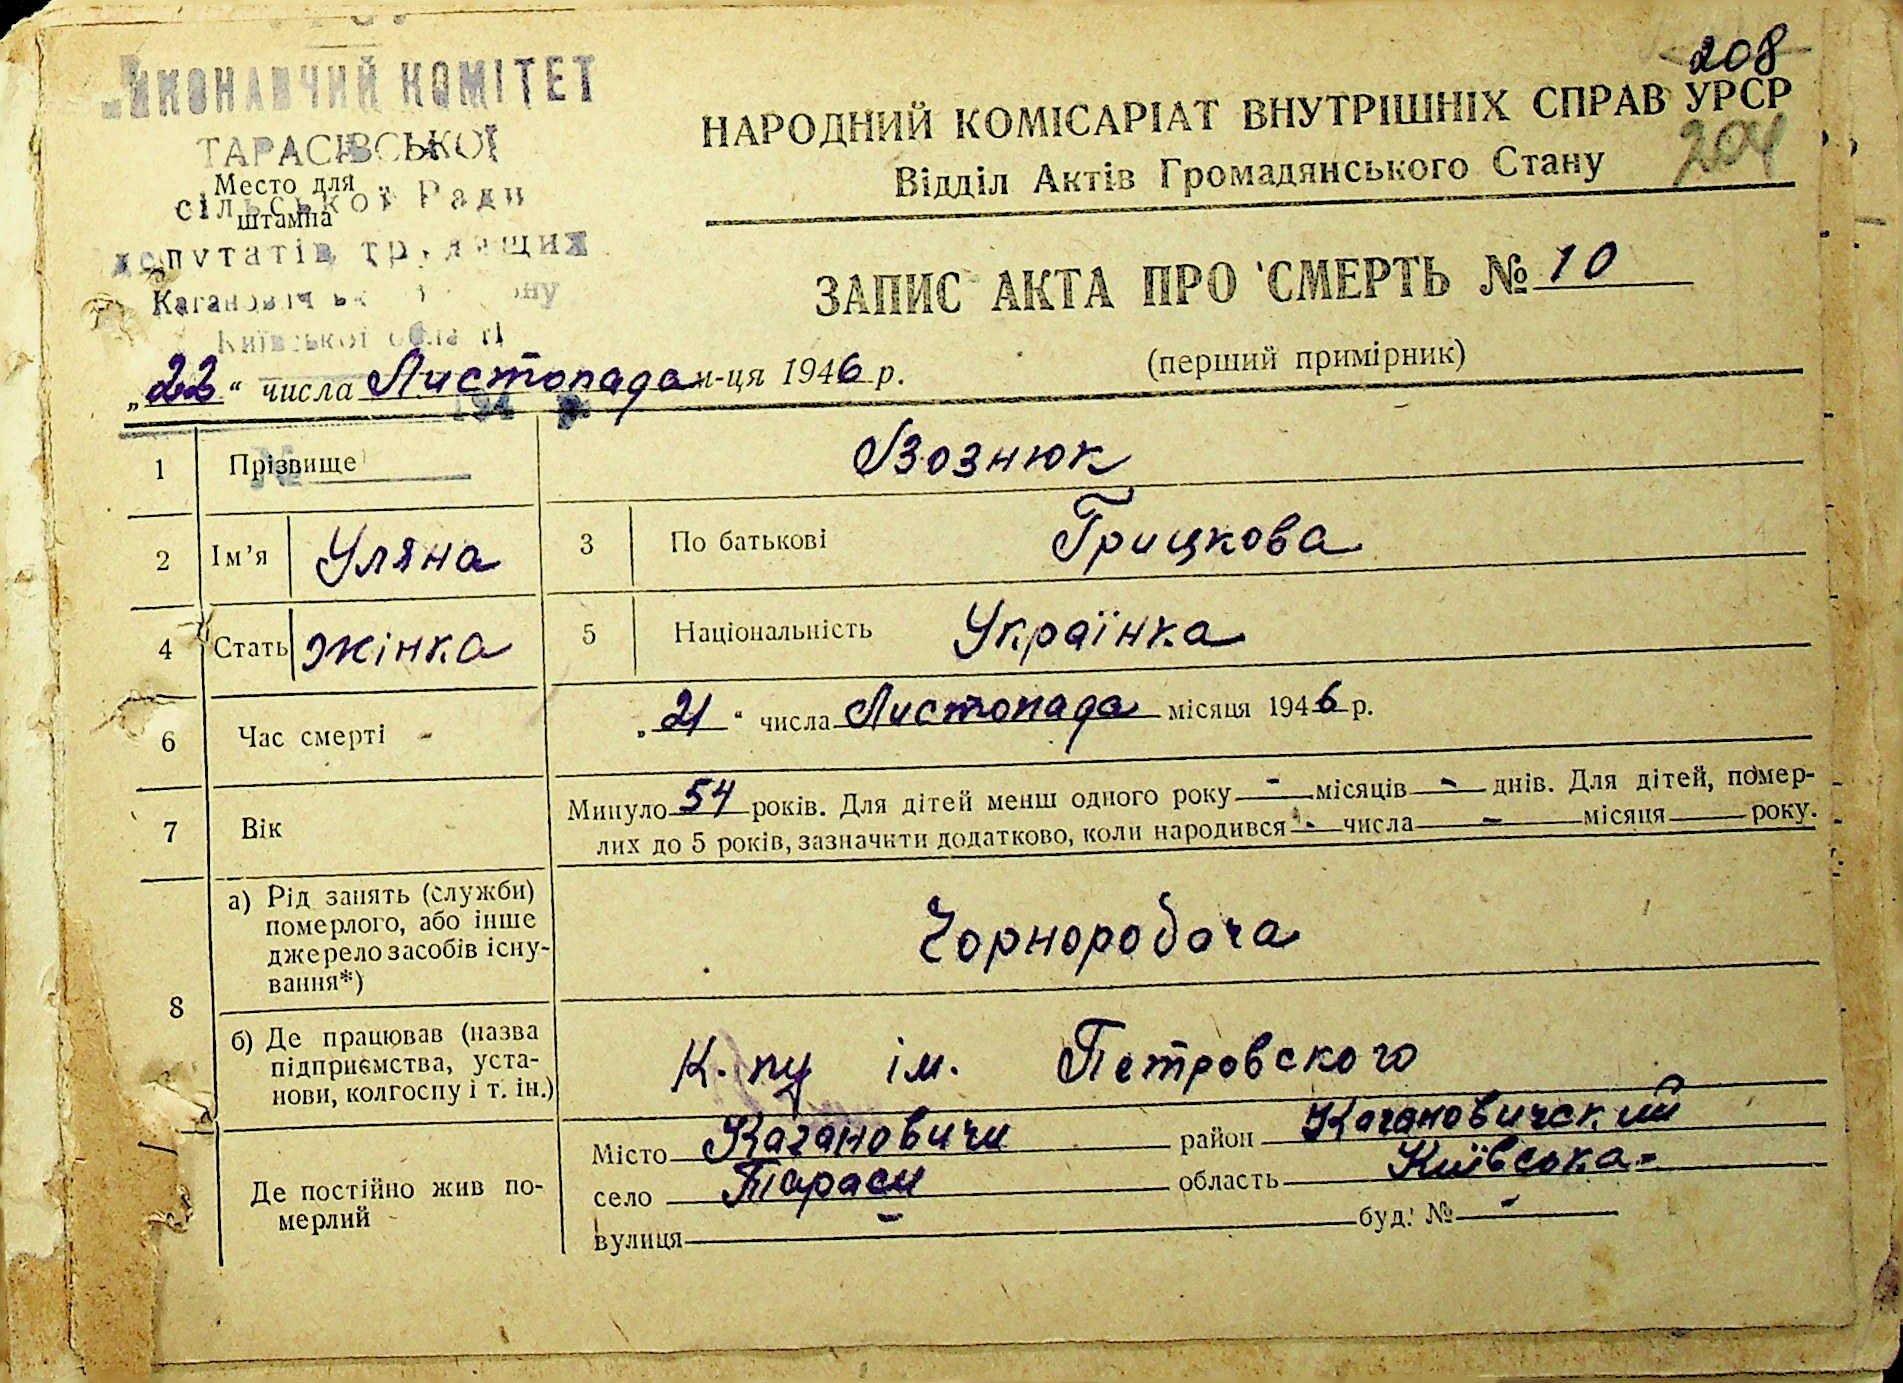 208
ВИКОНАВЧИЙ КОМІТЕТ
ТАРАСІВСЬКОЇ
Место для
сільської Ради
штампа
депутатів трудящих
Київської області
194 р.
№
НАРОДНИЙ КОМІСАРІАТ ВНУТРІШНІХ СПРАВ УРСР
204
Відділ Актів Громадянського Стану
ЗАПИС АКТА ПРО СМЕРТЬ № 10
(перший примірник)
„22“ числа Листопада м-ця 1946 р.
1 Прізвище Вознюк
2 Ім’я Уляна 3 По батькові Грицкова
4 Стать жінка 5 Національність Українка
6 Час смерті „21“ числа Листопада місяця 1946 р.
7 Вік Минуло 54 років. Для дітей менш одного року - місяців - днів. Для дітей, помер-
лих до 5 років, зазначити додатково, коли народився - числа - місяця року.
8 а) Рід занять (служби)
померлого, або інше
джерело засобів існу-
вання*)
Чорноробоча
б) Де працював (назва
підприємства, уста-
нови, колгоспу і т. ін.)
К. пу ім. Петровского
9 Де постійно жив по-
мерлий
Місто Кагановичи район Кагановичский
село Тараси область Київська
вулиця - буд. № -